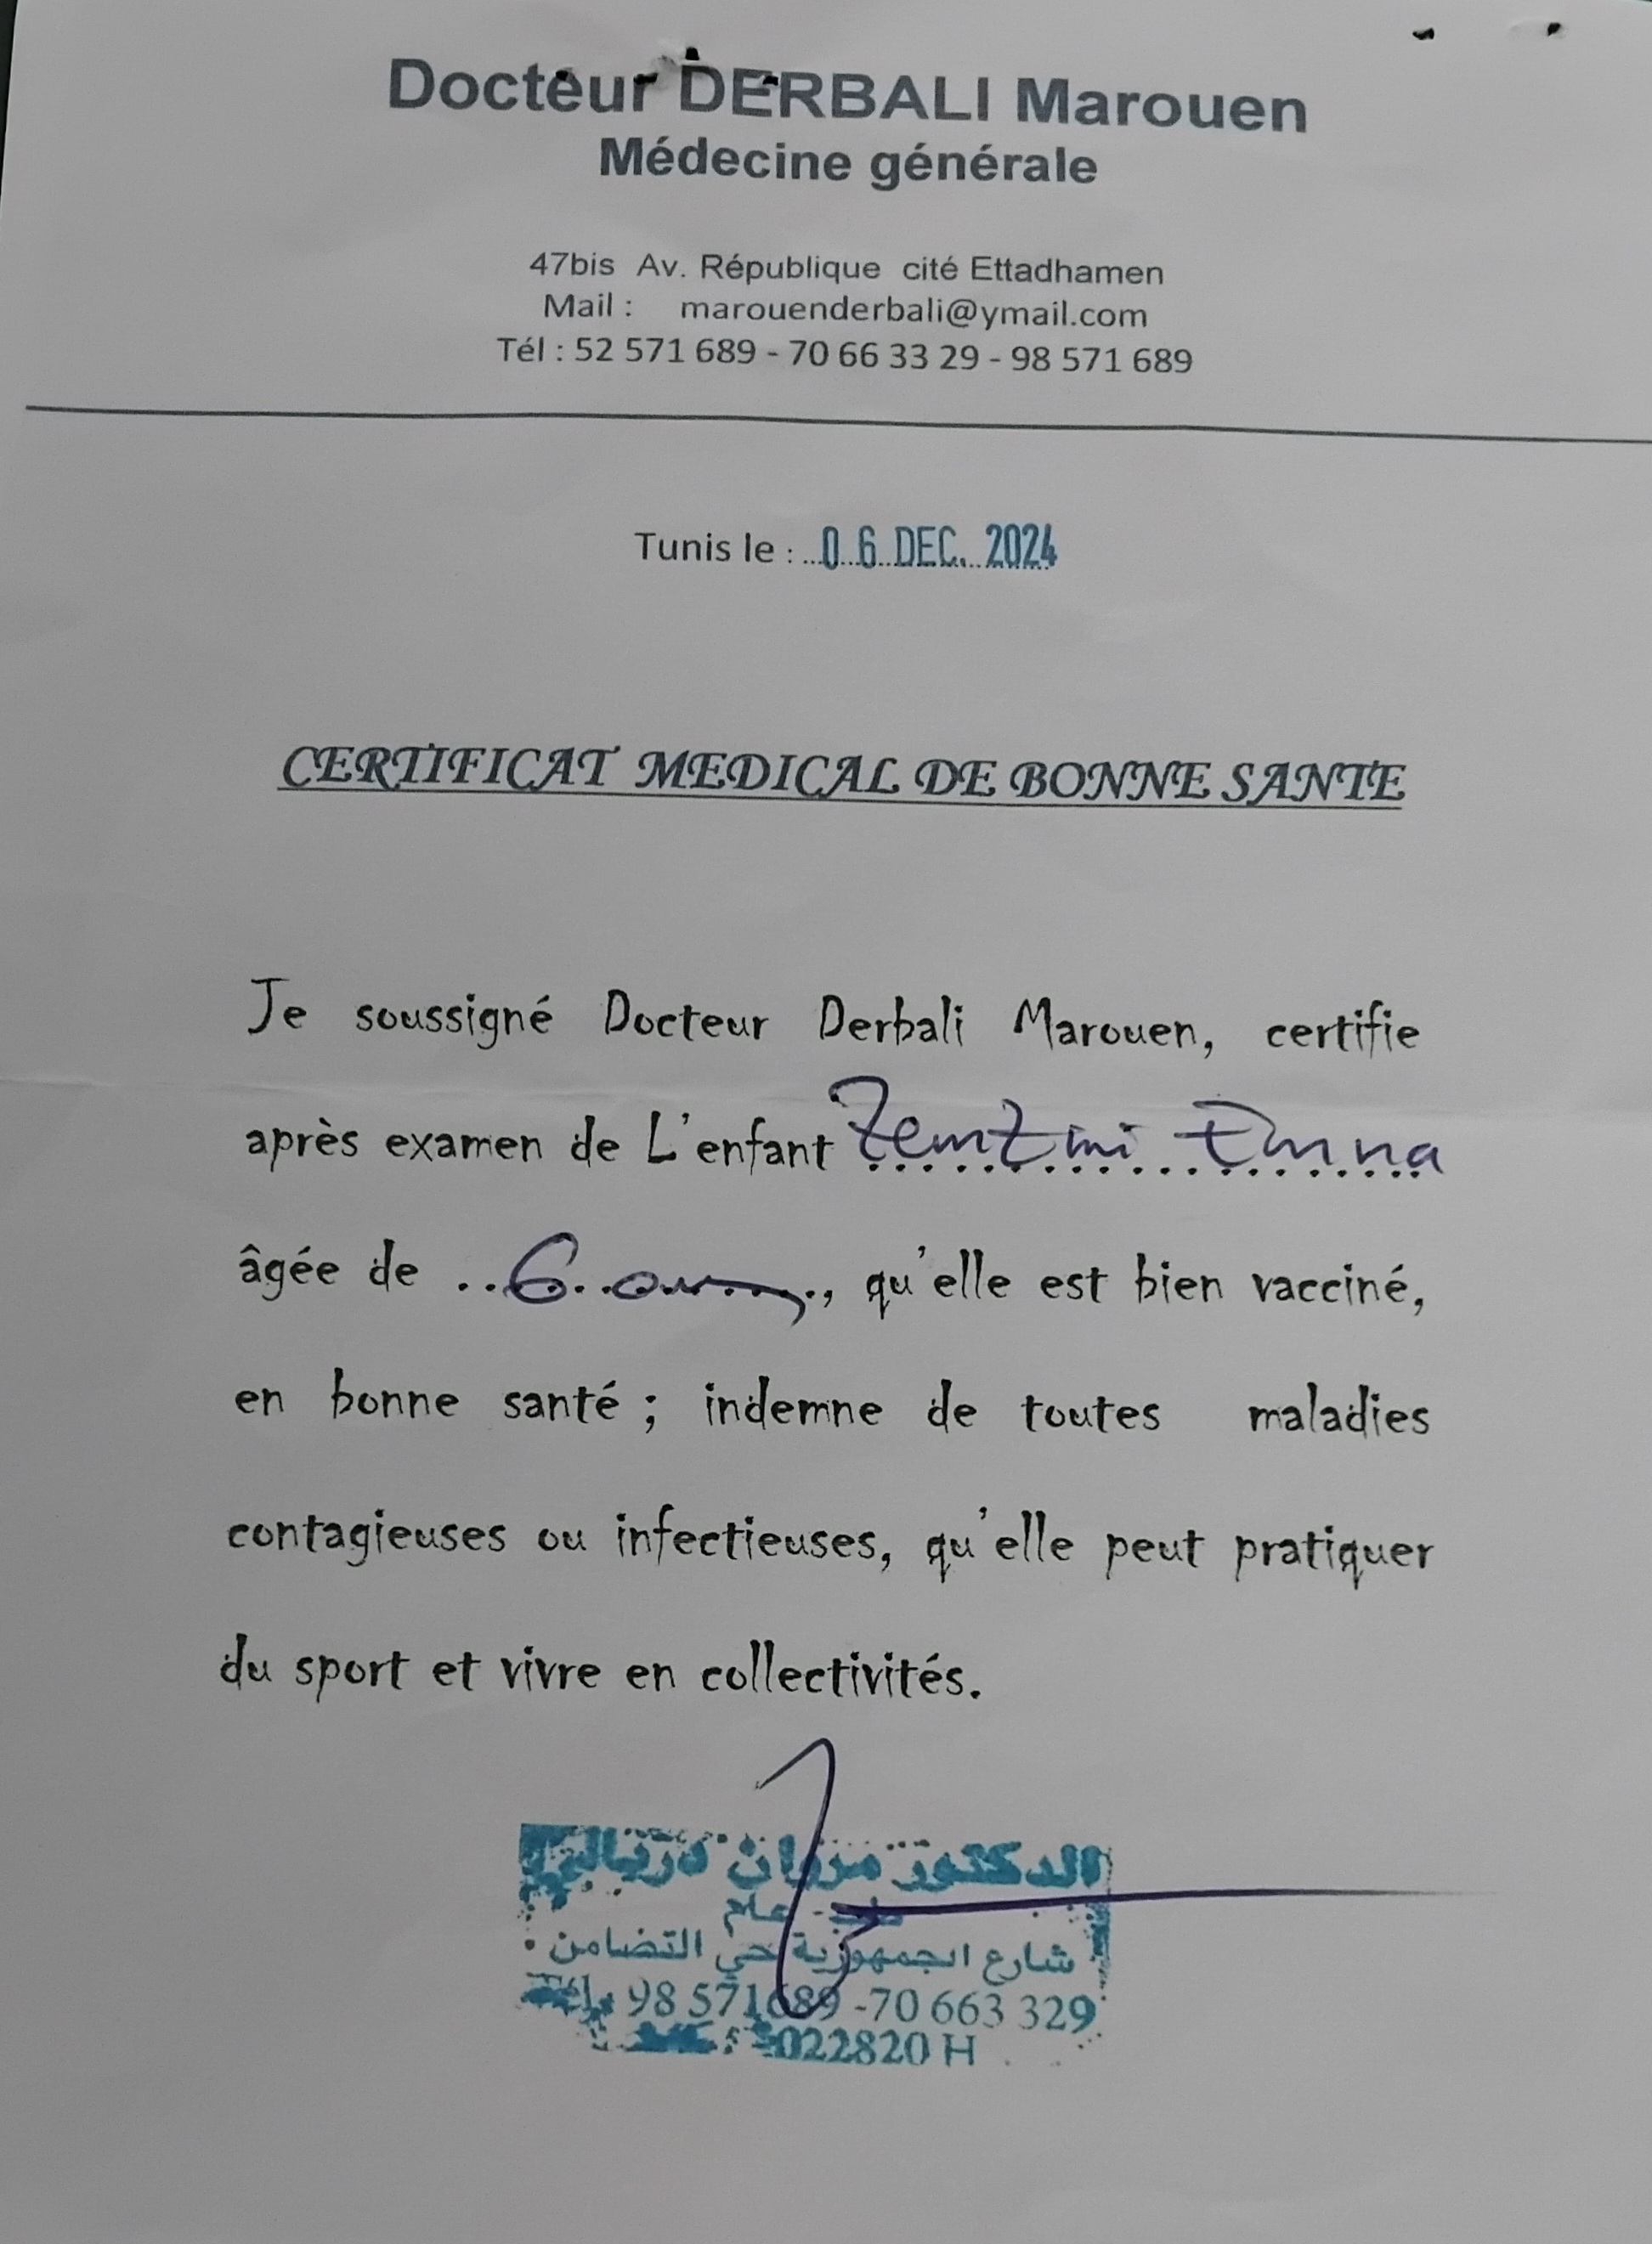 Docteur DERBALI Marouen
Médecine générale
47bis Av. République cité Ettadhamen
Mail : marouenderbali@ymail.com
Tél : 52 571 689 - 70 66 33 29 - 98 571 689
Tunis le : 06 DEC. 2024
CERTIFICAT MEDICAL DE BONNE SANTE
Je soussigné Docteur Derbali Marouen, certifie
après examen de L'enfant Zemzmi Emna
âgée de ..6.ans..., qu'elle est bien vacciné,
en bonne santé ; indemne de toutes maladies
contagieuses ou infectieuses, qu'elle peut pratiquer
du sport et vivre en collectivités.
الدكتور مروان دربالي
طب عام
شارع الجمهورية حي التضامن
98 571689 -70 663 329
022820 H